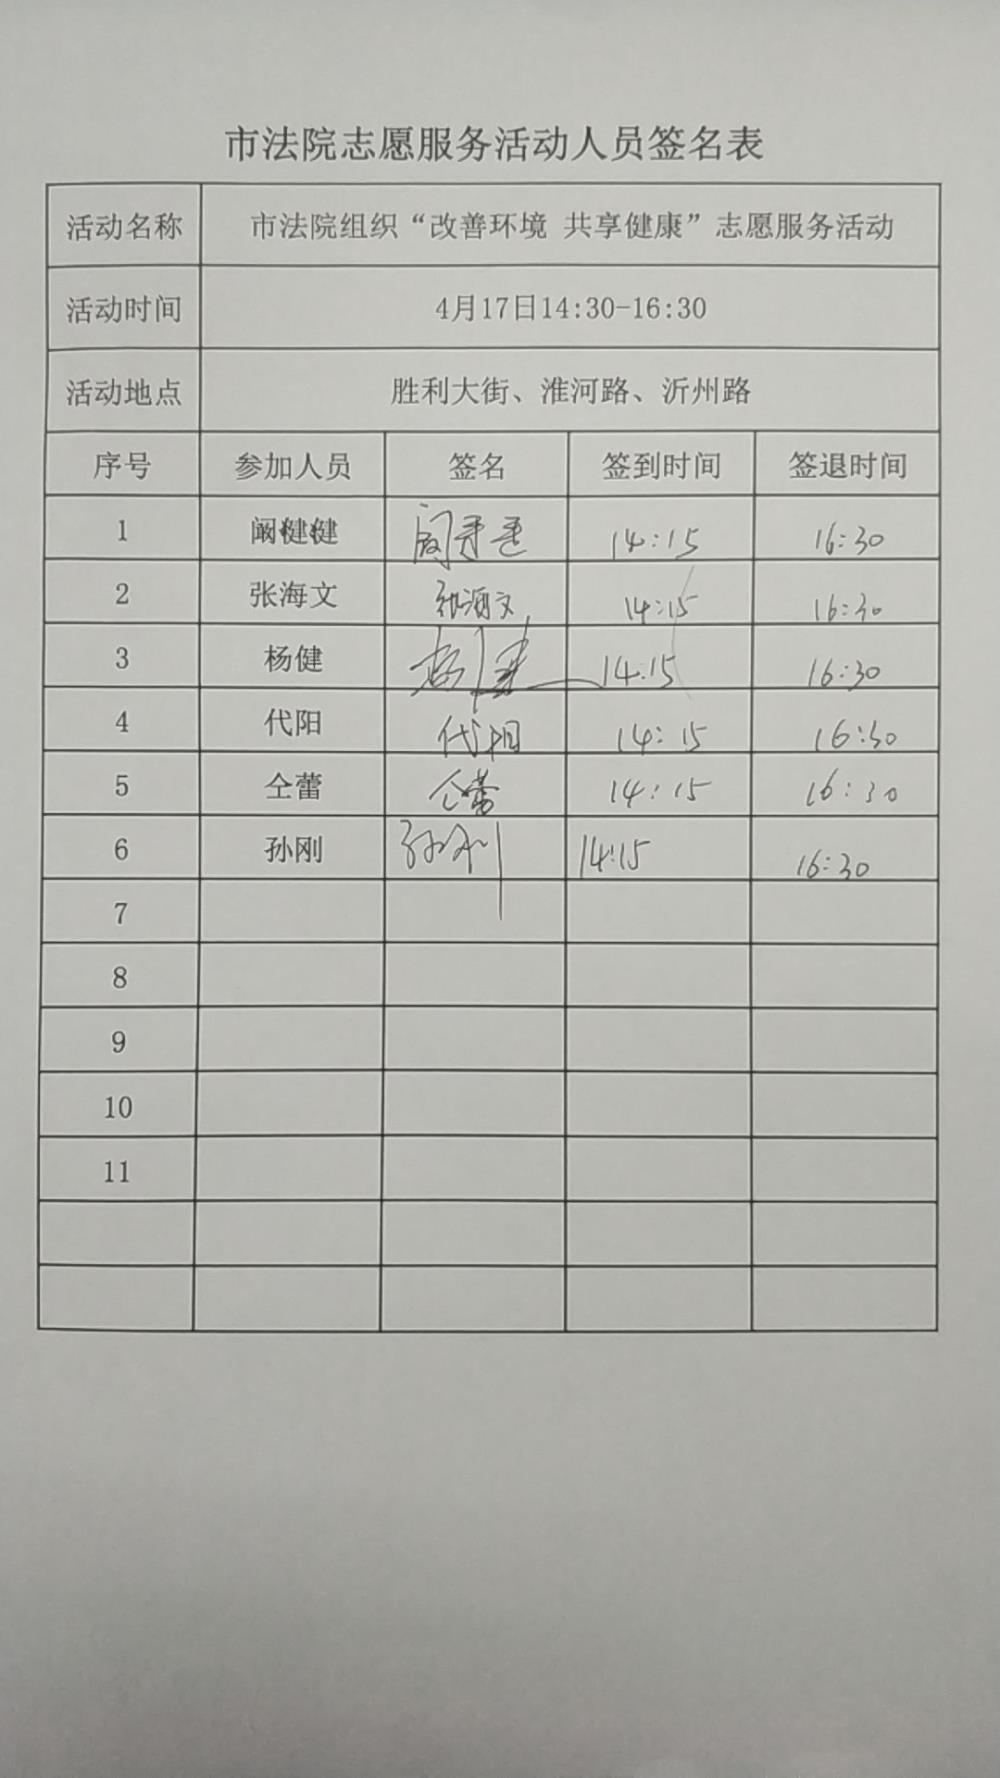 市法院志愿服务活动人员签名表
活动名称 市法院组织“改善环境 共享健康”志愿服务活动
活动时间 4月17日14:30-16:30
活动地点 胜利大街、淮河路、沂州路
序号 参加人员 签名 签到时间 签退时间
1 阚健健 14:15 16:30
2 张海文 张海文 14:15 16:30
3 杨健 杨健 14:15 16:30
4 代阳 代阳 14:15 16:30
5 仝蕾 仝蕾 14:15 16:30
6 孙刚 孙刚 14:15 16:30
7
8
9
10
11